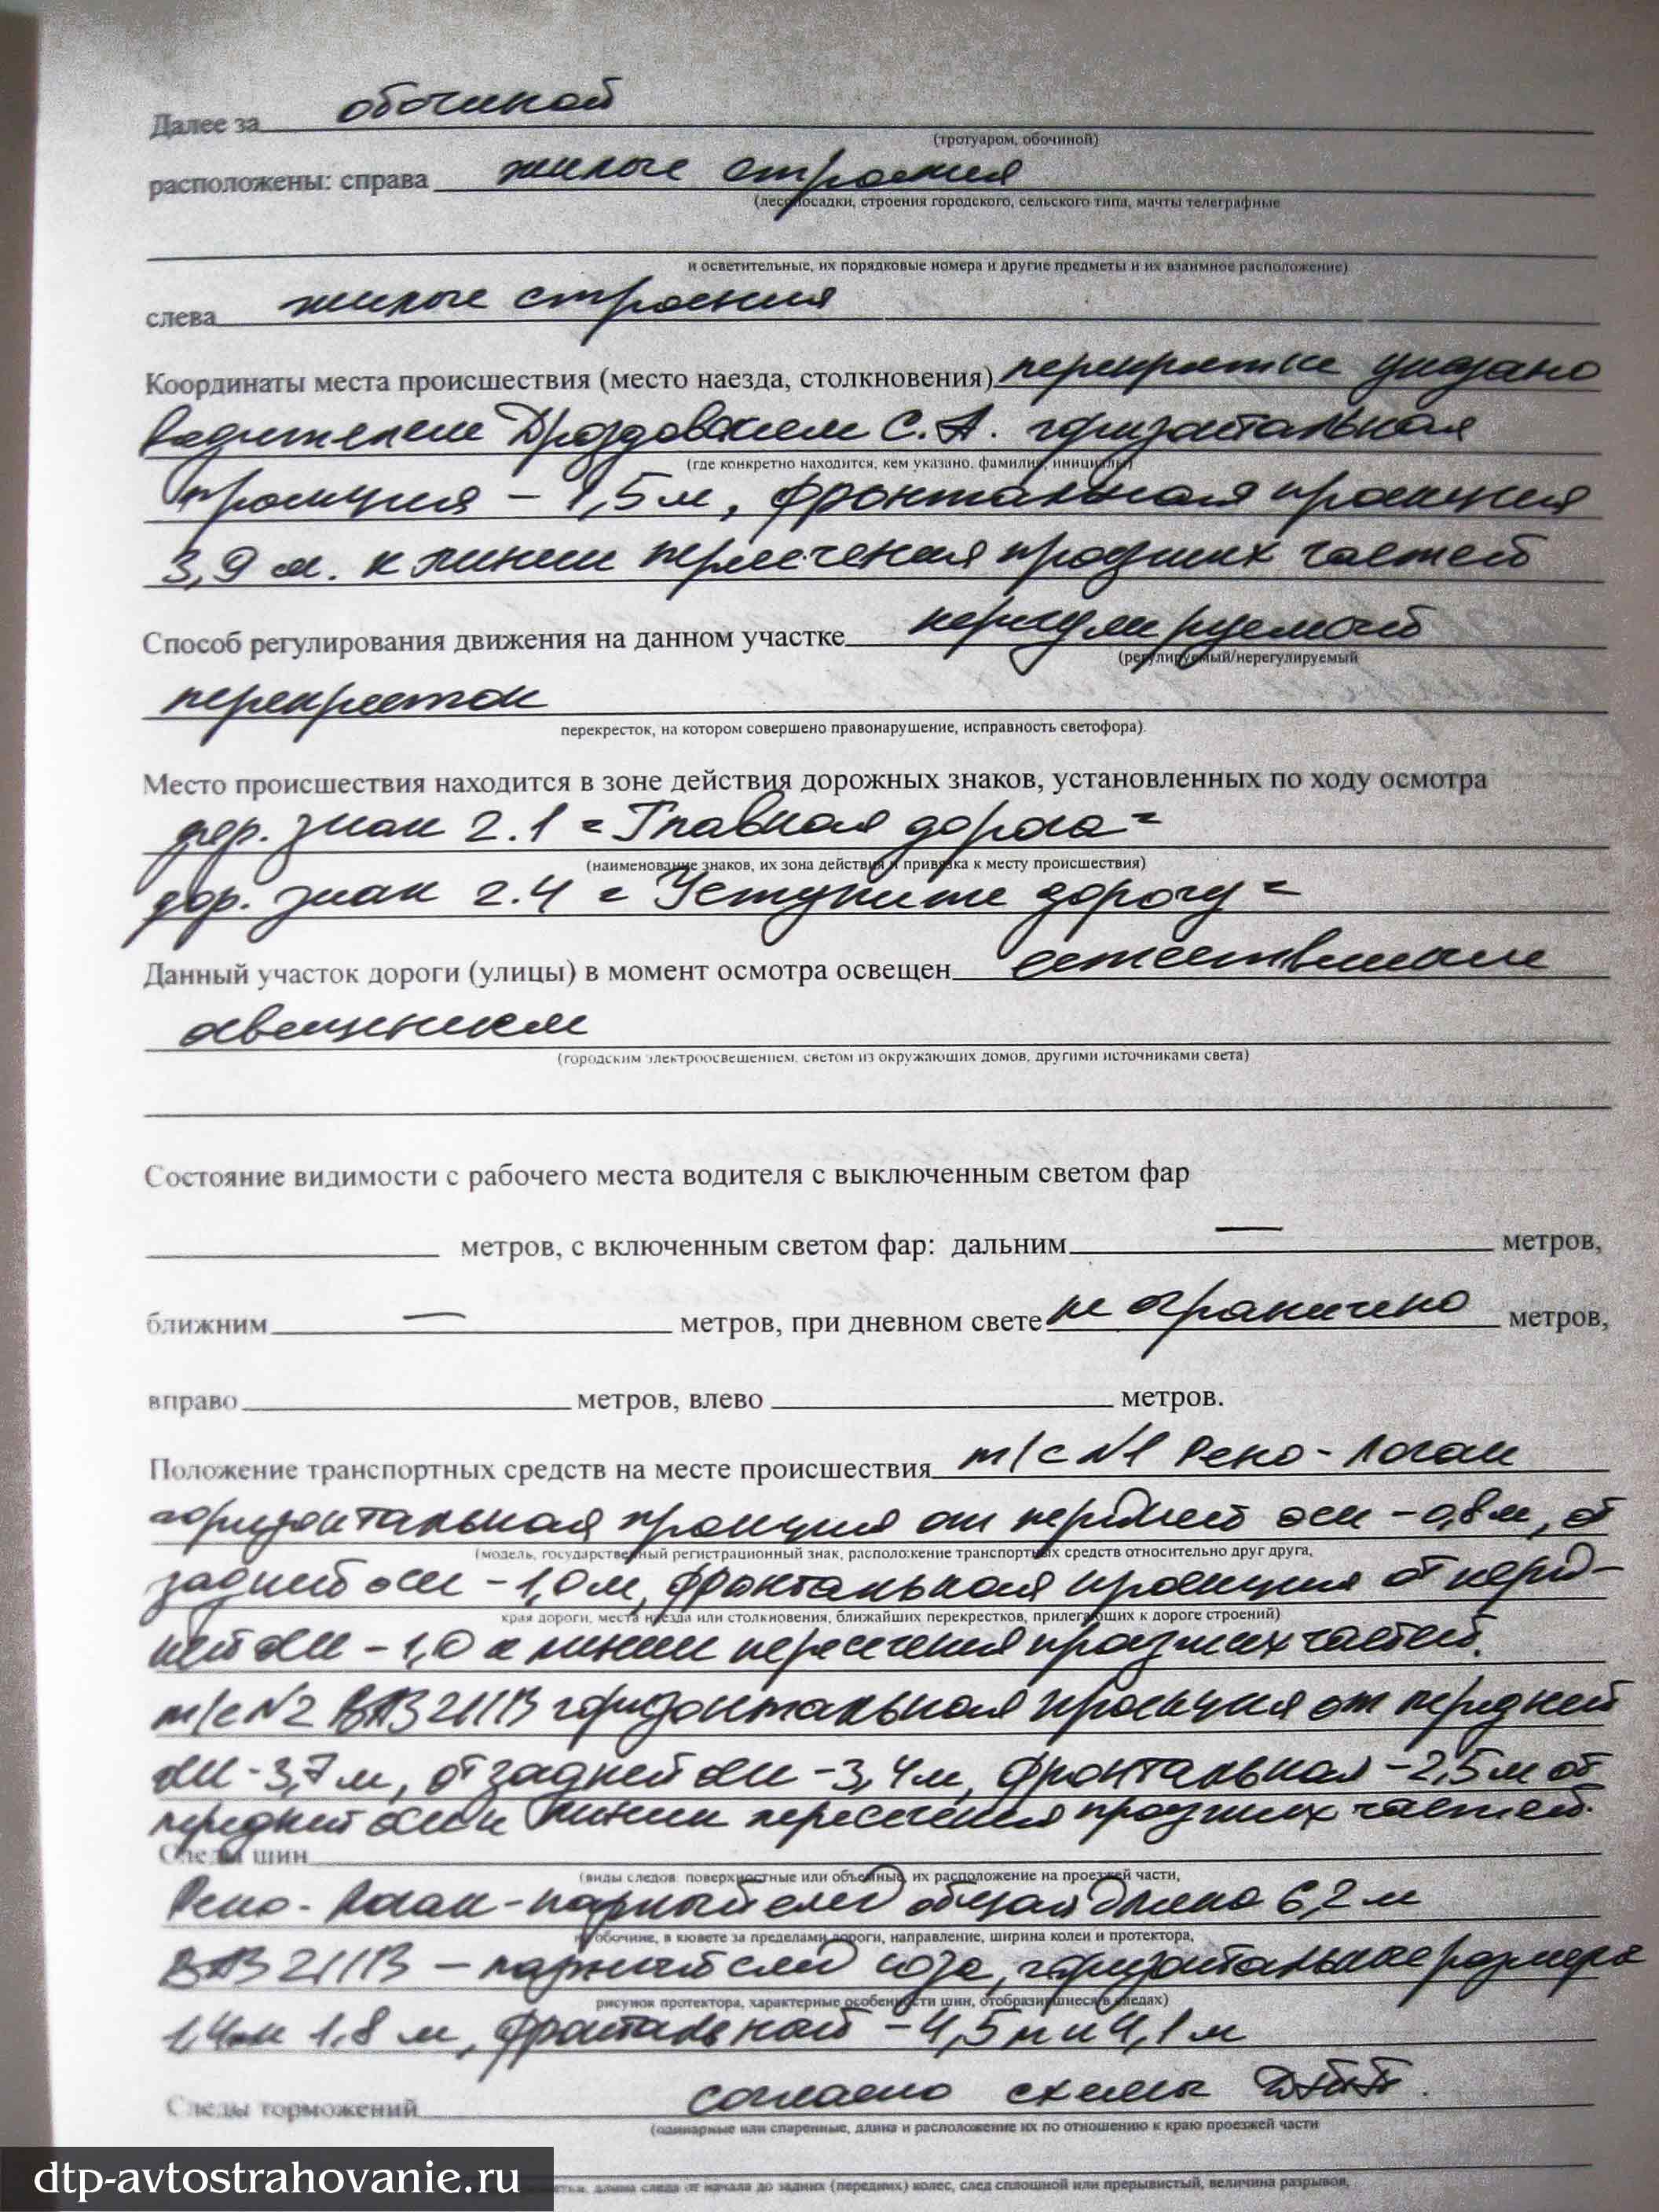 Далее за обочиной
(тротуаром, обочиной)
расположены: справа жилые строения
(лесопосадки, строения городского, сельского типа, мачты телеграфные
и осветительные, их порядковые номера и другие предметы и их взаимное расположение)
слева жилые строения
Координаты места происшествия (место наезда, столкновения) перекрестке указано
водителем Дроздовским С.А. горизонтальная
(где конкретно находится, кем указано, фамилия, инициалы)
проекция – 1,5 м, фронтальная проекция
3,9 м. к линии пересечения проезжих частей
Способ регулирования движения на данном участке нерегулируемый
(регулируемый/нерегулируемый
перекресток
перекресток, на котором совершено правонарушение, исправность светофора).
Место происшествия находится в зоне действия дорожных знаков, установленных по ходу осмотра
дор. знак 2.1 "Главная дорога"
(наименование знаков, их зона действия и привязка к месту происшествия)
дор. знак 2.4 "Уступите дорогу"
Данный участок дороги (улицы) в момент осмотра освещен естественным
освещением
(городским электроосвещением, светом из окружающих домов, другими источниками света)
Состояние видимости с рабочего места водителя с выключенным светом фар
метров, с включенным светом фар: дальним — метров,
ближним — метров, при дневном свете не ограничено метров,
вправо метров, влево метров.
Положение транспортных средств на месте происшествия т/с №1 Рено-Логан
горизонтальная проекция от передней оси – 0,8 м, от
(модель, государственный регистрационный знак, расположение транспортных средств относительно друг друга,
задней оси – 1,0 м, фронтальная проекция от перед-
края дороги, места наезда или столкновения, ближайших перекрестков, прилегающих к дороге строений)
ней оси – 1,0 к линии пересечения проезжих частей.
т/с №2 ВАЗ 21113 горизонтальная проекция от передней
оси - 3,7 м, от задней оси – 3,4 м, фронтальная – 2,5 м от
передней оси к линии пересечения проезжих частей.
Следы шин
(виды следов: поверхностные или объемные, их расположение на проезжей части,
Рено-Логан - парный след общая длина 6,2 м
на обочине, в кювете за пределами дороги, направление, ширина колеи и протектора,
ВАЗ 21113 – парный след юза, горизонтальные размеры
рисунок протектора, характерные особенности шин, отобразившиеся в следах)
1,4 м и 1,8 м, фронтальной – 4,5 м и 4,1 м
Следы торможений согласно схемы ДТП.
(одинарные или спаренные, длина и расположение их по отношению к краю проезжей части
длина следа от начала до задних (передних) колес, след сплошной или прерывистый, величина разрывов,
dtp-avtostrahovanie.ru